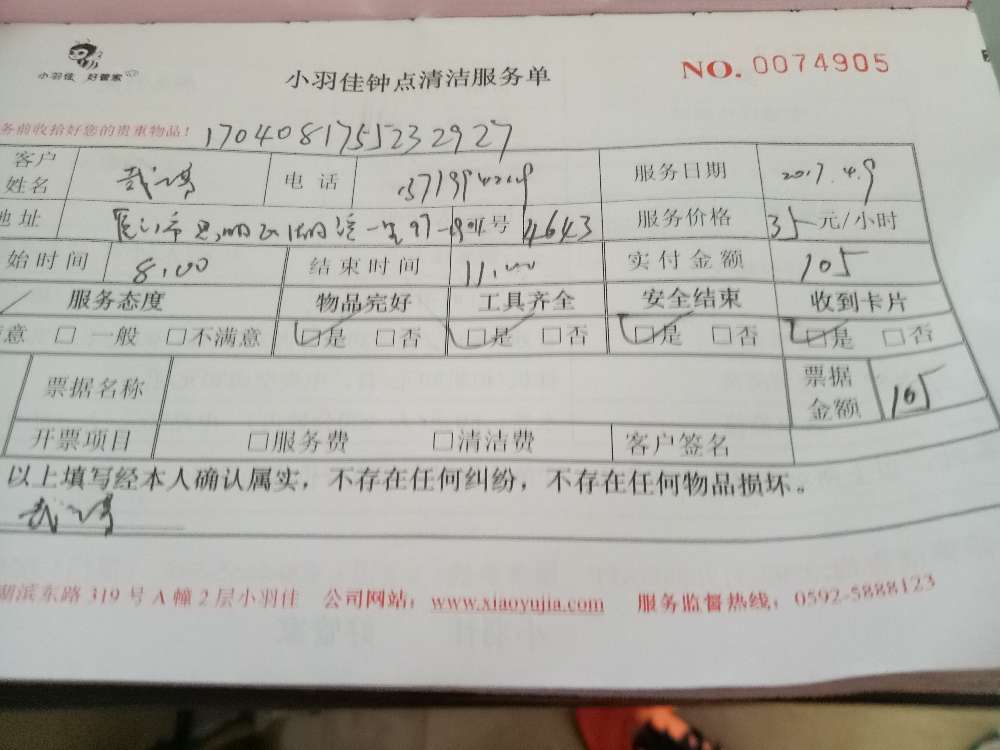 小羽佳 好管家
小羽佳钟点清洁服务单
NO. 0074905
务前收拾好您的贵重物品! 1704081755232927
客户姓名 电话 服务日期 2017.4.9
地址 号 4643 服务价格 35 元/小时
始时间 8:00 结束时间 11:00 实付金额 105
服务态度 物品完好 工具齐全 安全结束 收到卡片
意 □ 一般 □不满意 □是 □否 □是 □否 □是 □否 □是 □否
票据名称 票据金额 105
开票项目 □服务费 □清洁费 客户签名
以上填写经本人确认属实，不存在任何纠纷，不存在任何物品损坏。
湖滨东路 319 号 A 幢 2 层小羽佳 公司网站：www.xiaoyujia.com 服务监督热线：0592-5888123